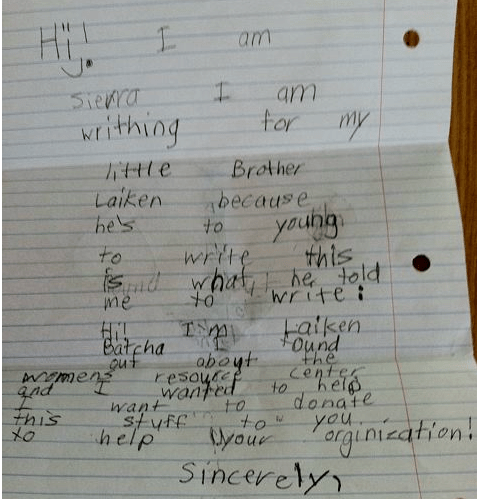 Hi! I am
sierra I am
writhing for my
little Brother
Laiken because
he's to young
to write this
is what he told
me to write:
Hi! I'm Laiken
Batcha I found
out about the
womens resource center
and I wanted to help
I want to donate
this stuff to you
to help your orginization!
Sincerely,